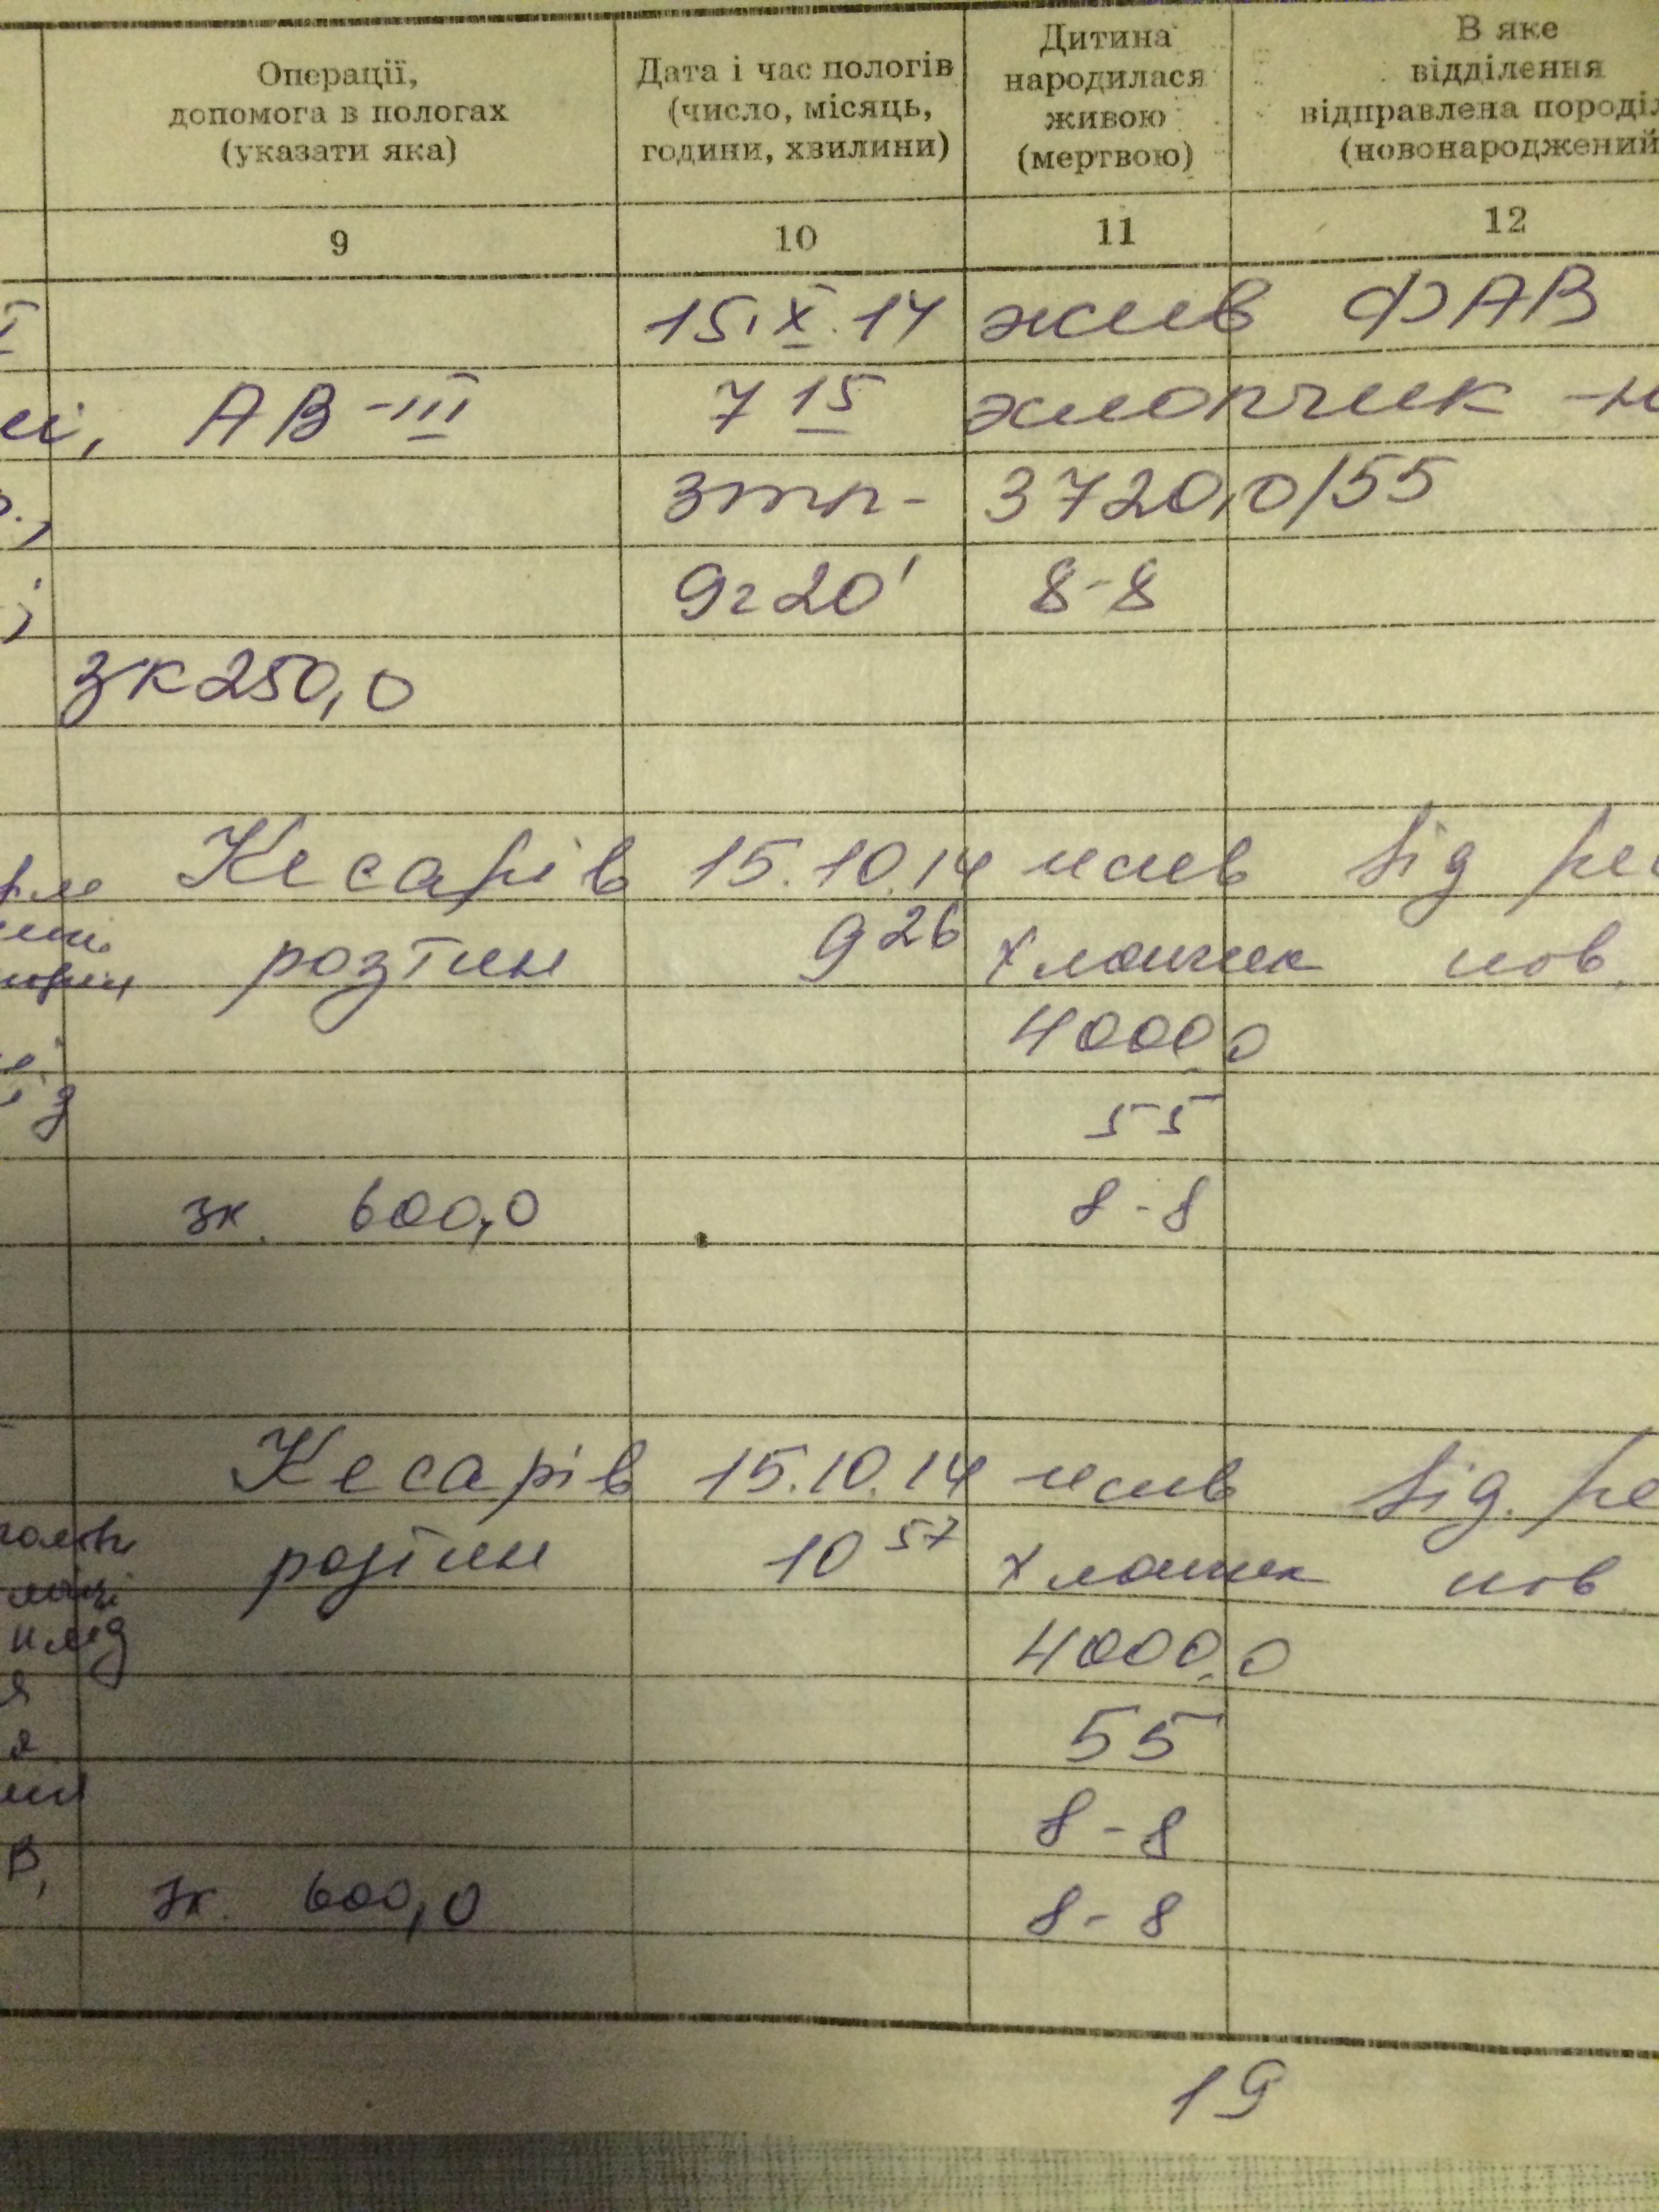 Операції,
допомога в пологах
(указати яка)
Дата і час пологів
(число, місяць,
години, хвилини)
Дитина
народилася
живою
(мертвою)
В яке
відділення
відправлена породіл
(новонароджений
9 10 11 12
15.X.14 жив ФАВ
АВ-III 7 15 хлопчик -н
Зтп- 3720,0/55
9г20' 8-8
зк 250,0
Кесарів 15.10.14 жив від ре
розтин 9 26 хлопчик нов.
4000,0
55
зк. 600,0 8-8
Кесарів 15.10.14 жив від. ре
розтин 10 57 хлопчик нов
плід 4000,0
я 55
8-8
В, зк. 600,0 8-8
19